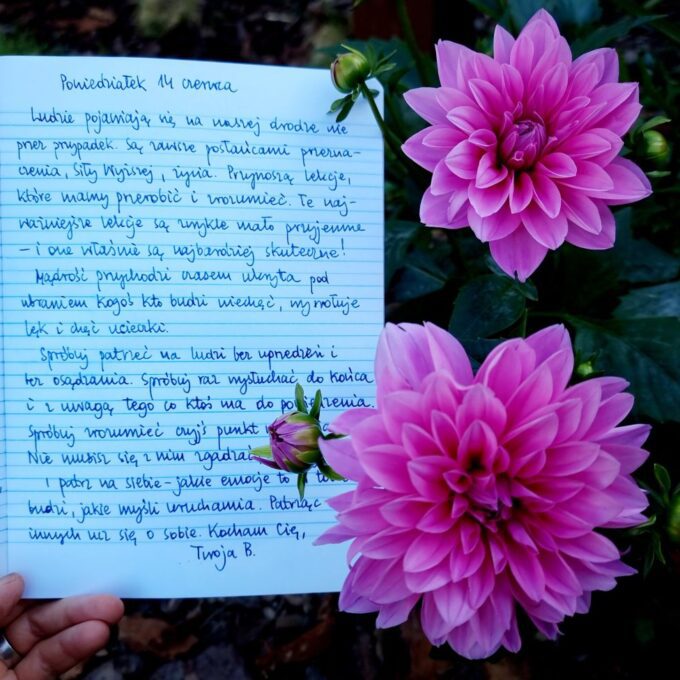 Poniedziałek 14 czerwca
Ludzie pojawiają się na naszej drodze nie
przez przypadek. Są zawsze posłańcami przezna-
czenia, Siły Wyższej, życia. Przynoszą lekcje,
które mamy przerobić i zrozumieć. Te naj-
ważniejsze lekcje są zwykle mało przyjemne
– i one właśnie są najbardziej skuteczne!
Mądrość przychodzi czasem ukryta pod
ubraniem kogoś kto budzi niechęć, wywołuje
lęk i chęć ucieczki.
Spróbuj patrzeć na ludzi bez uprzedzeń i
bez osądzania. Spróbuj raz wysłuchać do końca
i z uwagą tego co ktoś ma do
Spróbuj zrozumieć czyjś punkt
Nie musisz się z nim zgadzać
I patrz na siebie – jakie emocje to w
budzi, jakie myśli uruchamia. Patrząc
innych ucz się o sobie. Kocham Cię,
Twoja B.